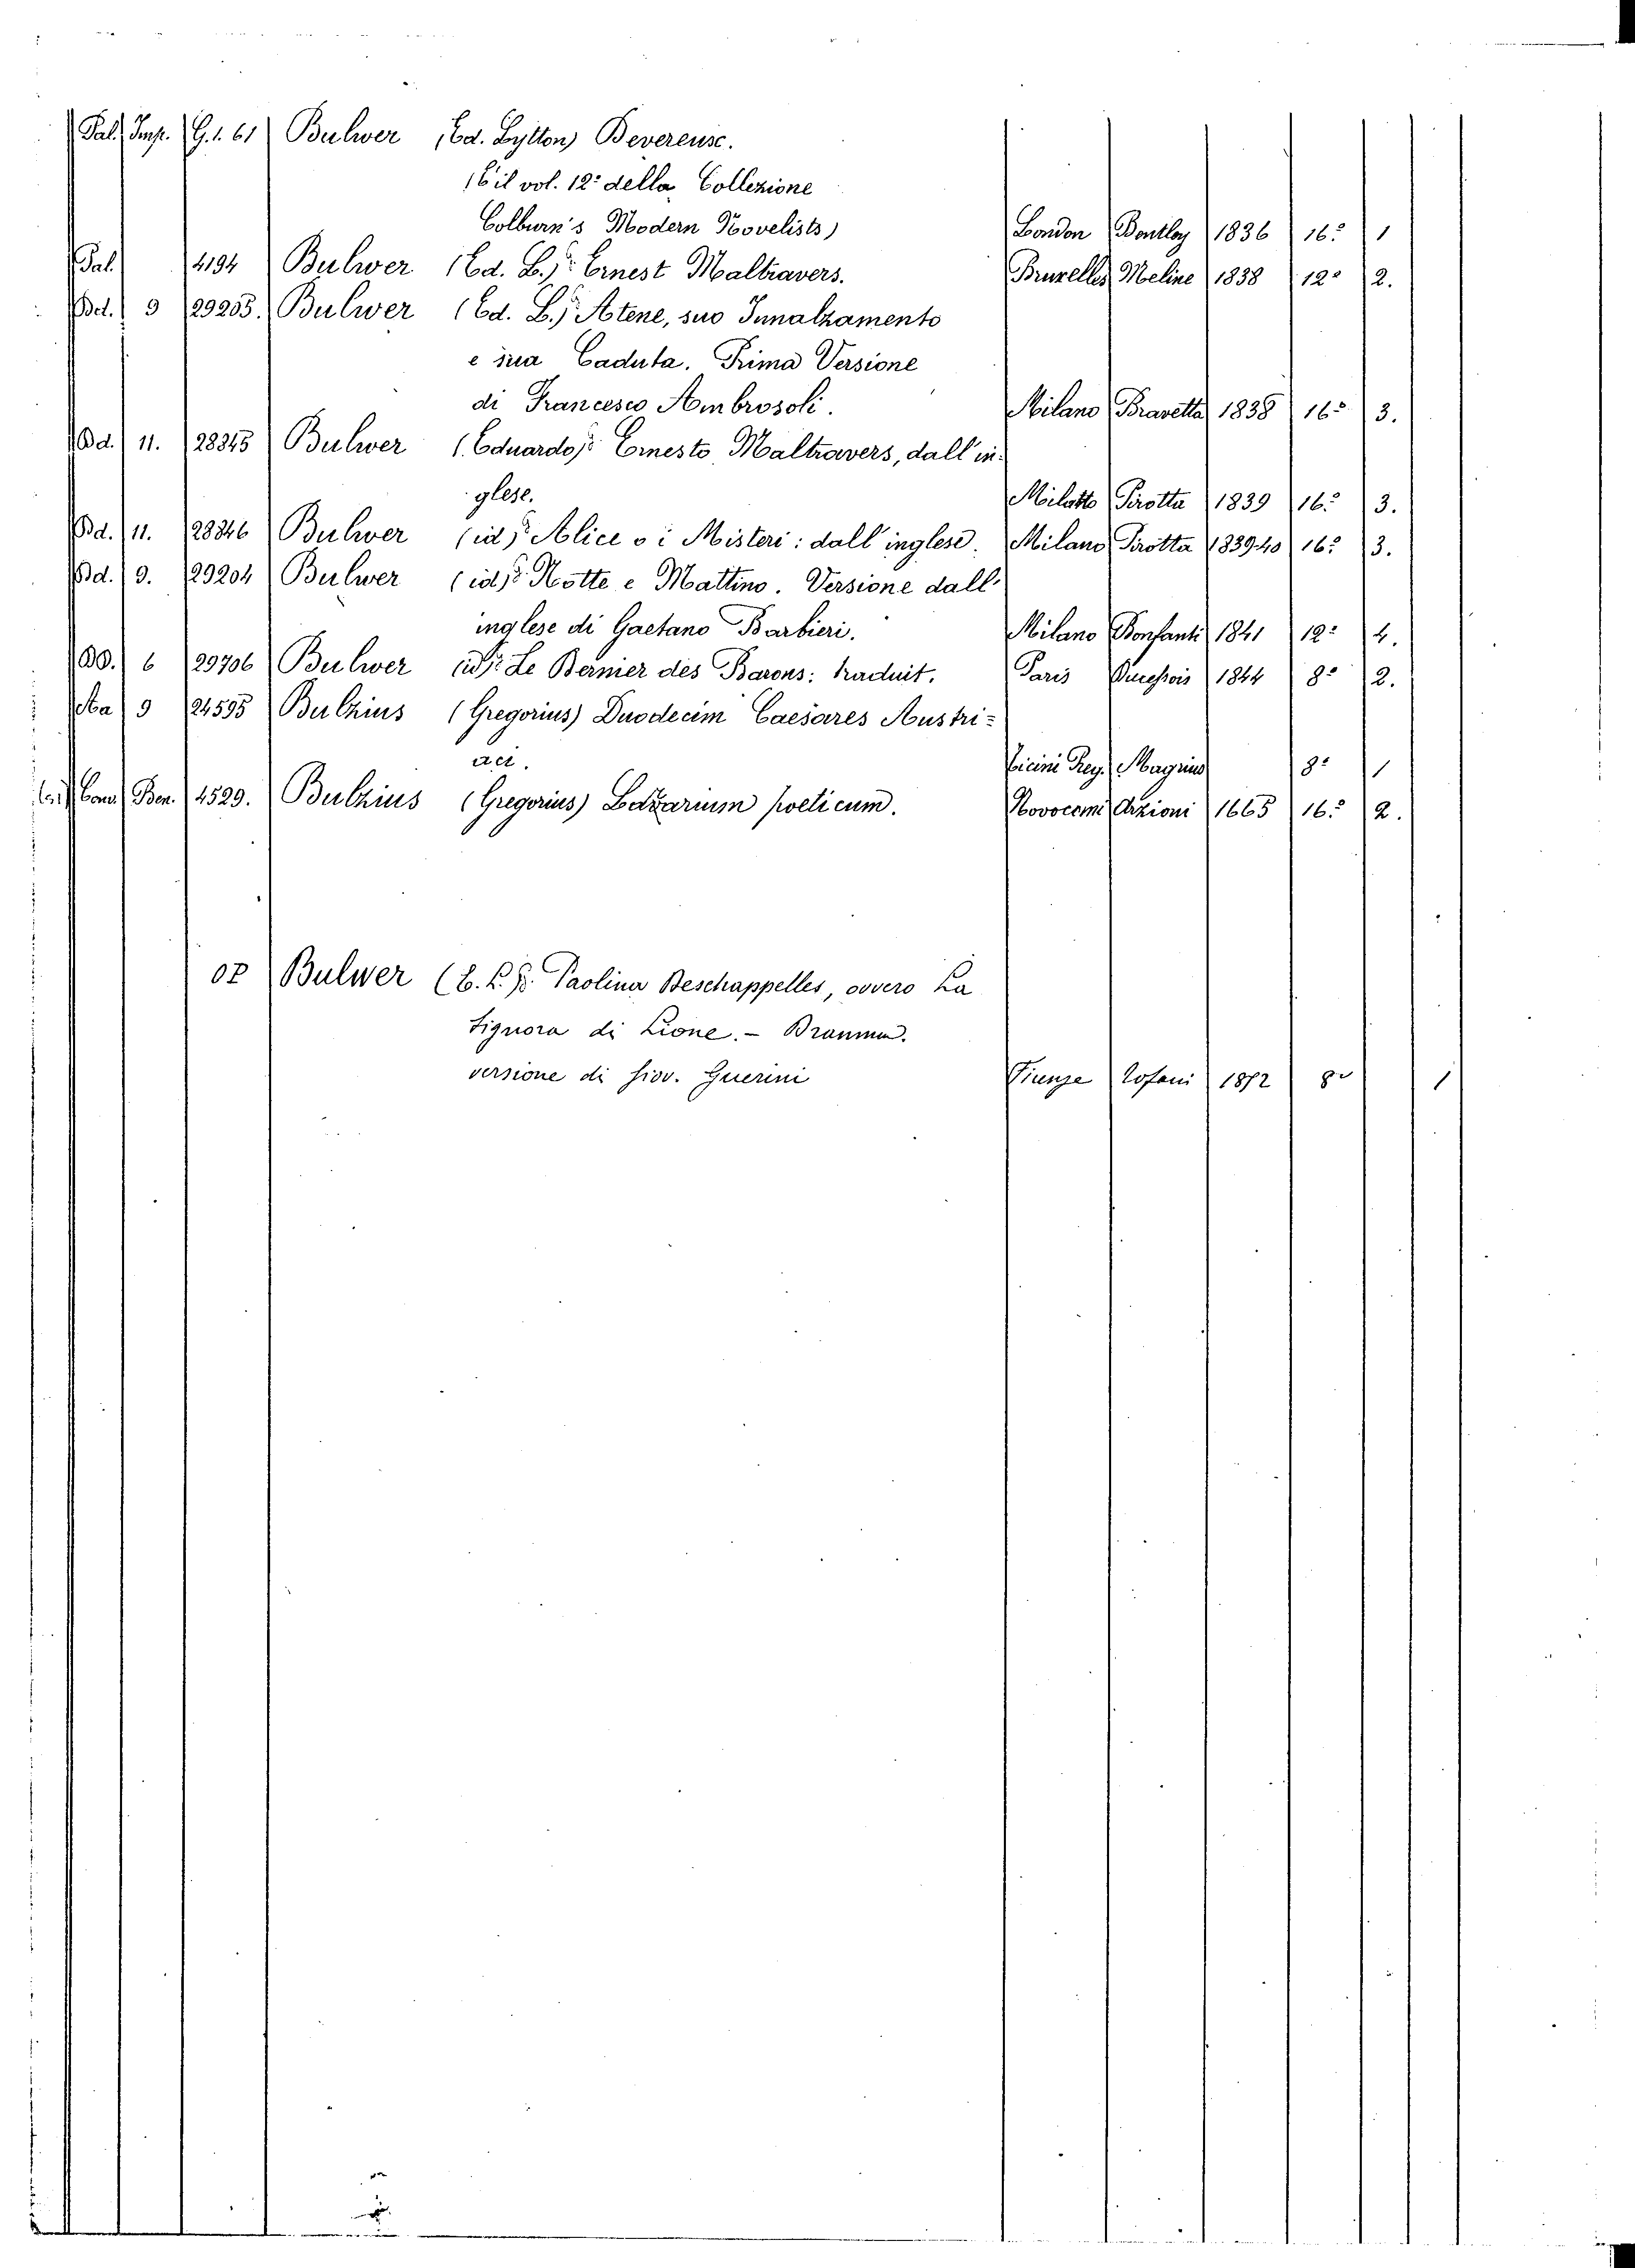 Pal. Imp. G. 1. 61 Bulwer (Ed. Lytton) Devereux.
(È il vol. 12º della Collezione
Colburn's Modern Novelists) London Bentley 1836 16º 1
Pal. 4194 Bulwer (Ed. L.)º Ernest Maltravers. Bruxelles Meline 1838 12º 2.
Bd. 9 29205. Bulwer (Ed. L.)º Atene, suo Innalzamento
e sua Caduta. Prima Versione
di Francesco Ambrosoli. Milano Bravetta 1838 16º 3.
Bd. 11. 28345 Bulwer (Eduardo)º Ernesto Maltravers, dall' in-
glese. Milano Pirotta 1839 16º 3.
Bd. 11. 28346 Bulwer (id)º Alice o i Misteri: dall' inglese. Milano Pirotta 1839-40 16º 3.
Bd. 9. 29204 Bulwer (id)º Notte e Mattino. Versione dall'
inglese di Gaetano Barbieri. Milano Bonfanti 1841 12º 4.
6 29706 Bulwer (id)º Le Dernier des Barons: traduit. Paris 1844 8º 2.
9 24595 Bulzius (Gregorius) Duodecim Caesares Austri-
aci. Ticini Reg. Magrius 8º 1
Ben. 4529. Bulzius (Gregorius) poeticum. Novocomi 1665 16º 2.
Bulwer (E. L.)º Paolina Beschappelles, ovvero La
Signora di Lione. - Dramma.
versione di Giov. Guerini Firenze Cofani 1872 8º 1